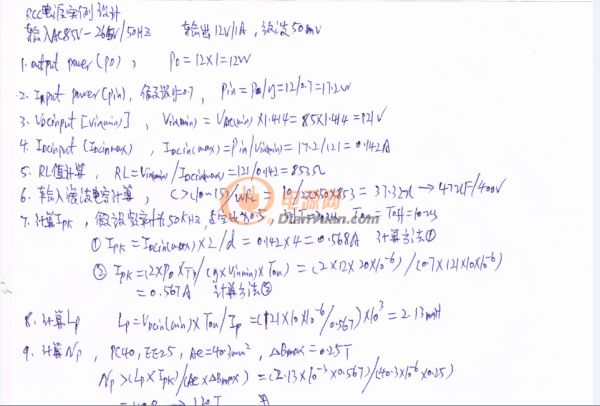 RCC电源实例设计
输入AC85V-265V/50HZ 输出12V/1A, 纹波50mV
1. output power (Po), Po=12×1=12W
2. Input power (pin), 假设效率η=0.7, Pin=Po/η=12/0.7=17.2W
3. VDCinput [Vin(min)], Vin(min)=VAC(min)×1.414=85×1.414=121V
4. IDCinput (IDCin(max)), IDCin(max)=Pin/Vin(min)=17.2/121=0.142A
5. RL值计算, RL=Vin(min)/IDCin(max)=121/0.142=853Ω
6. 输入滤波电容计算, C>(10~15)/WRL = 10/2×50×853=37.32u→47uF/400V
7. 计算Ipk, 假设频率计在50KHZ, 占空比0.5, T=20us, Ton=Toff=10us
① Ipk=IDCin(max)×2/d=0.142×4=0.568A 计算方法①
② Ipk=(2×Po×Tp)/(η×Vin(min)×Ton)=(2×12×20×10⁻⁶)/(0.7×121×10×10⁻⁶)
=0.567A 计算方法②
8. 计算Lp Lp=VDCin(min)×Ton/Ip=(121×10×10⁻⁶/0.567)×10³=2.13mH
9. 计算Np, PC40, EE25, Ae=40.3mm², ΔBmax=0.25T
Np>(Lp×Ipk)/(Ae×ΔBmax)=(2.13×10⁻³×0.567)/(40.3×10⁻⁶×0.25)
电源网
DianYuan.com